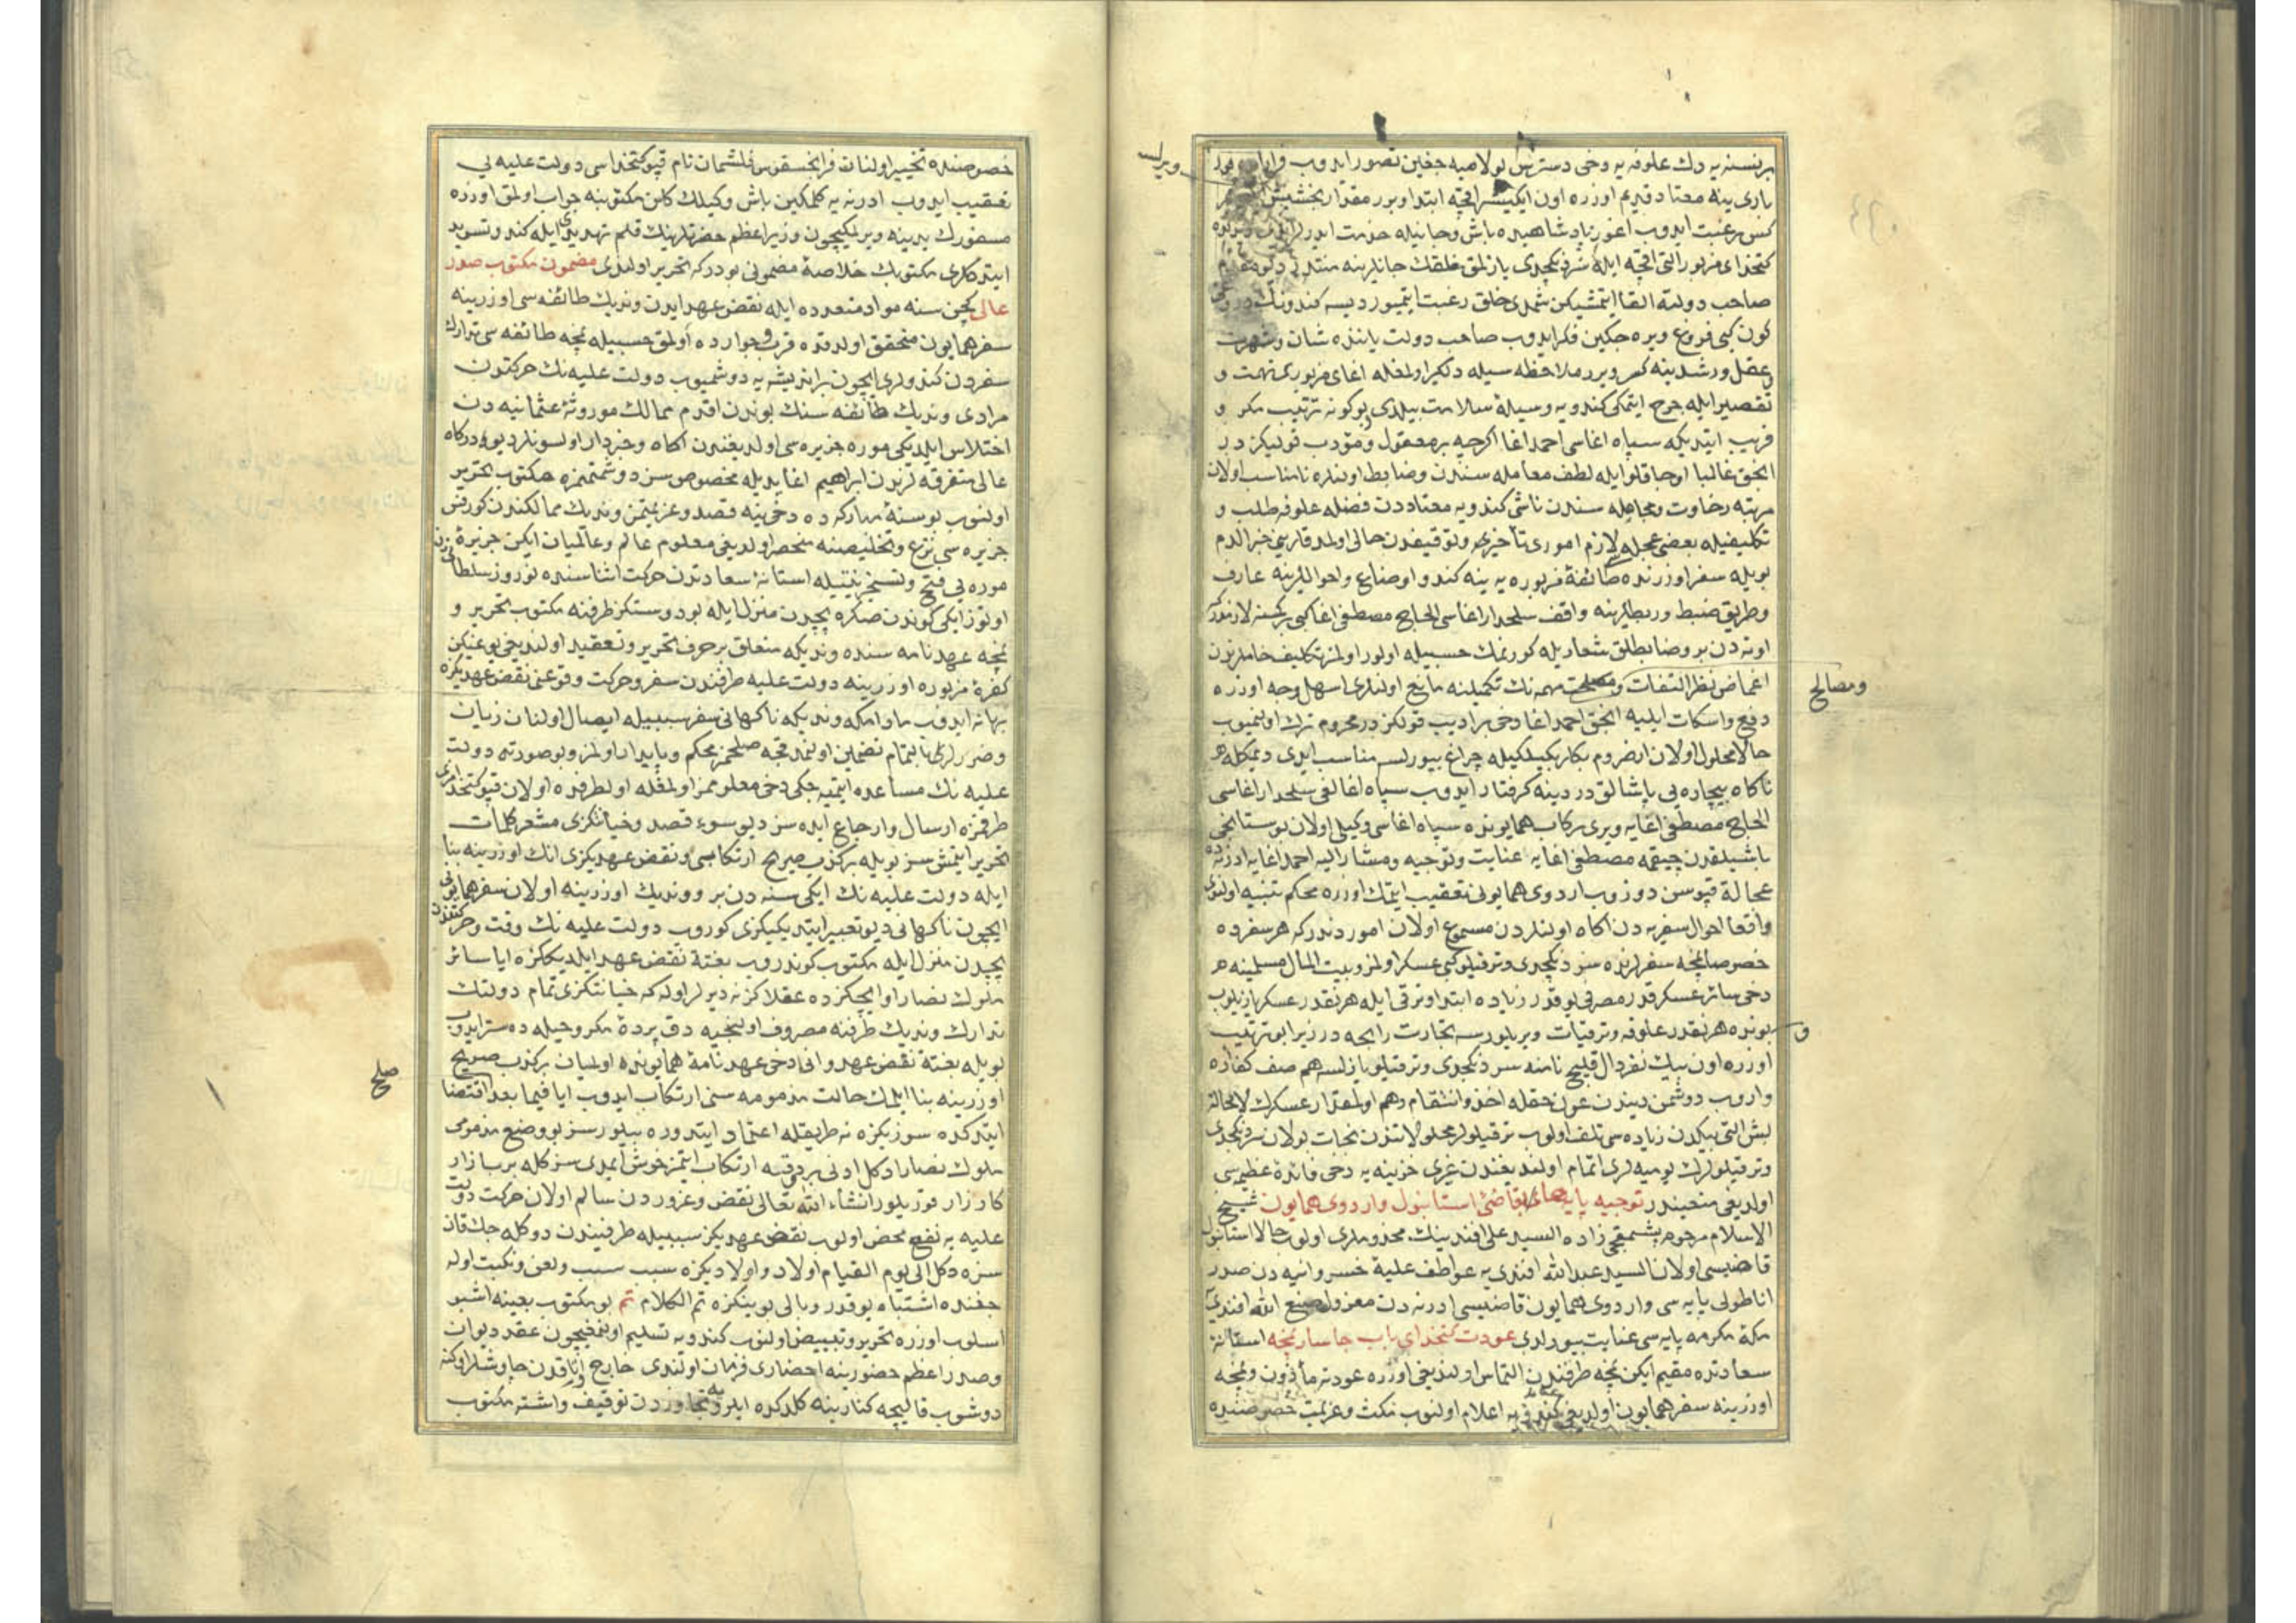 برنسنه یه دك علوفه یه وخی دسترس بولامیه جغین تصور ایدوب
باری ینه معتاد قدیم اوزره اون ایکیشر اقچه ابتدا و برر مقدار بخشیش
كتخدای مزبور التی اقچه ایله سردنكچدی یازلمق خلقك جانلرینه منتدر
صاحب دولته القا ایتمشیكن شمدی خلق رغبت ایتمیور دیسه كندونك
كون كبی فروغ ویره جكین فكر ایدوب صاحب دولت یاننده شان و شهرت
و عقل و رشدینه كسر ویرر ملاحظه سیله دلكیر اولمغله اغای مزبوری تهمت و
تقصیر ایله جرح ایتمكی كندویه وسیلۀ سلامت بیلدی بو كونه ترتیب مكر و
فریب ایتدیكه سپاه اغاسی احمد اغا اكرچه بر معقول و مؤدب قولیكز در
انجق غالبا اوجاقلو ایله لطف معامله سندن و ضابط اولنلره نامناسب اولان
مرتبه رخاوت و مجامله سندن ناشی كندویه معتاددن فضله علوفه طلب و
تكلیفیله بعضی عجله لازم اموری تأخیر و توقیفدن حالی اولمدقلرین خبر الدم
بویله سفر اوزرنده طائفۀ مزبوره یه ینه كندو اوضاع و احواللرینه عارف
و طریق ضبط و ربطلرینه واقف سلحدار اغاسی الحاج مصطفی اغا كبی بر كمسنه لازمدر كه
اوته دن برو ضابطلق شعاریله كورنمك حسبیله اولور اولمز تكلیف خاملرندن
اغماض نظر التفات و مصلحت مهمه نك تكمیلنه مانع اولنلری اسهل وجه اوزره
ومصالح
دفع و اسكات ایلیه انجق احمد اغا دخی بر ادیب قولكز در محروم ترك اولنمیوب
حالا محلول اولان ارضروم بكلربكیلكیله چراغ بیورلسه مناسب ایدی دیمكله
ناكاه بیچاره یی پاشالق دردینه كرفتار ایدوب سپاه اغالغی سلحدار اغاسی
الحاج مصطفی اغایه ویری ركاب همایونده سپاه اغاسی وكیلی اولان بوستانجی
باشیلقدن چیقمه مصطفی اغایه عنایت و توجیه و مشار الیه احمد اغایه ادرنه ده
عجالة قپوسن دوزوب اردوی همایونی تعقیب ایتمك اوزره محكم تنبیه اولندی
واقعا احوال سفریه دن اكاه اولنلردن مسموع اولان اموردندر كه هر سفرده
خصوصا نیجه سفرلرده سردنكچدی و ترقیلو كبی عسكر اولمز و بیت المال مسلمینه
دخی سائر عسكر قدر مصرفی یوقدر زیاده ابتدا و ترقی ایله هر نقدر عسكر یازیلوب
بونره هر نقدر علوفه و ترقیات ویریلورسه تجارت رابحه در زیرا بو ترتیب
اوزره اون بیك نفر دال قلیج نامنه سردنكچدی و ترقیلو یازلسه هم صف كفاره
واروب دوشمن دیندن عون حقله اخذ و انتقام و هم اولمقدار عسكرك لا محاله
بش التی بیكدن زیاده سی تلف اولوب ترقیلولر محلولاتندن نجات بولان سردنكچدی
و ترقیلولرك یومیه لری اتمام اولندیغندن غیری خزینه یه دخی فائدۀ عظیمه سی
اولدیغی متعیندر توجیه پایه هاء بقاضئ استانبول و اردوی همایون شیخ
الاسلام مرحوم پشمقجی زاده السید علی افندینك مخدوملری اولوب حالا استانبول
قاضیسی اولان السید عبد الله افندی یه عواطف علیۀ خسروانیه دن صدر
اناطولی پایه سی و اردوی همایون قاضیسی ادرنه دن معزول صنع الله افندی یه
مكۀ مكرمه پایه سی عنایت بیورلدی عودت كتخدای باب جاسار نمچه استانۀ
سعادتده مقیم ایكن نمچه طرفندن التماس اولندیغی اوزره عودته مأذون و نمچه
اوزرینه سفر همایون اولدیغی كندویه اعلام اولنوب مكث و عزیمت خصوصنده
خصوصنده تخییر اولنان فرانجسقوس فلشمان نام قپو كتخداسی دولت علیه یی
تعقیب ایدوب ادرنه یه كلمكین باش وكیلك كلن مكتوبنه جواب اولمق اوزره
مسفورك یدینه ویرلمكیچون وزیر اعظم حضرتلرینك قلم تهدیدی ایله كندو تسوید
ایتدكلری مكتوبك خلاصۀ مضمونی بودر كه تحریر اولندی مضمون مكتوب صدر
عالی كچن سنه مواد متعدده ایله نقض عهد ایدن وندیك طائفه سی اوزرینه
سفر همایون متحقق اولدقده قرب و جوارده اولمق حسبیله نمچه طائفه سی تدارك
سفردن كندولری ایچون بر اندیشه یه دوشمیوب دولت علیه نك حركتون
مرادی وندیك طائفه سنك بوندن اقدم ممالك موروثۀ عثمانیه دن
اختلاس ایلدیكی موره جزیره سی اولدیغندن اكاه و خبردار اولسونلر دیو دركاه
عالی متفرقه لرندن ابراهیم اغا یدیله مخصوص سزه دوشتمزه مكتوب تحریر
اولنوب بو سنۀ مباركه ده دخی ینه قصد و عزیمتمز وندیك ممالكندن كورفس
جزیره سی نزع و تخلیصنه منحصر اولدیغی معلوم عالم و عالمیان ایكن جزیرۀ
موره یی فتح و تسخیر نیتیله استانۀ سعادتدن حركت اثناسنده نوروز سلطانیدن
اوتوز ایكی كوندن صكره بچدن منزل ایله بو دوستكز طرفنه مكتوب تحریر و
نمچه عهدنامه سنده وندیكه متعلق بر حرف تحریر و تعقید اولندیغی یوغیكن
كفرۀ مزبوره اوزرینه دولت علیه طرفندن سفر و حركت وقوعنی نقض عهدیكزه
بهانه ایدوب مادامكه وندیكه ناكهانی سفر سببیله ایصال اولنان زیان
و ضررلری بالتمام تضمین اولنمدقجه صلحمز محكم و پایدار اولمز و بو صورته دولت
علیه نك مساعده ایتمیه جكی دخی معلوممز اولمغله اول طرفده اولان قپو كتخدامزی
طرفمزه ارسال و ارجاع ایده سز دیو سوء قصد و خیانتكزی مشعر كلمات
تحریر ایتمش سز بویله بر كذب صریح ارتكابی و نقض عهدیكزی انك اوزرینه بنا
ایله دولت علیه نك ایكی سنه دن برو وندیك اوزرینه اولان سفر همایونی
ایچون ناكهانی دیو تعبیر ایتدیكیكزی كوروب دولت علیه نك وقت حركتنده
بچدن منزل ایله مكتوب كوندروب بغتة نقض عهد ایلدیككزه ایا سائر
ملوك نصارا و ایچكزده عقلاكز نه دیرلر اوله كه خیانتكزی تمام دولتك
تدارك وندیك طرفنه مصروف اولنجیه دق پردۀ مكر و حیله ده ستر ایدوب
بویله بغتة نقض عهد و انی دخی عهدنامۀ همایونده اولمیان بر كذب صریح
صلح
اوزرینه بنا ایلمك حالت مذمومه سنی ارتكاب ایدوب ایا فیما بعد اقتضا
ایتدكده سوزیكزه نه طریقله اعتماد ایتدوره بیلورسز بو وضع مذمومی
ملوك نصارا دكل ادنی بر قبه ارتكاب ایتمز خوش ایمدی سزكله بر بازار
كارزار قوریلور انشاء الله تعالی نقض و غروردن سالم اولان حركت دولت
علیه یه نفع محض اولوب نقض عهدیكز سببیله طرفیندن دوكله جك قان
سزه دكل الی یوم القیام اولاد و اولادیكزه سبب سب و لعن و نكبت اوله
جغنده اشتباه یوقدر وبالی بوینكزه تم الكلام تم بو مكتوب بعینه اشبو
اسلوب اوزره تحریر و تبییض اولنوب كندویه تسلیم اولنمغیچون عقد دیوان
و صدر اعظم حضورینه احضاری فرمان اولندی خارج اوطاقدن چاوشلر اوكنه
دوشوب قالیچه كنارینه كلدكده ایلرویه تجاوزدن توقیف و اشته مكتوب